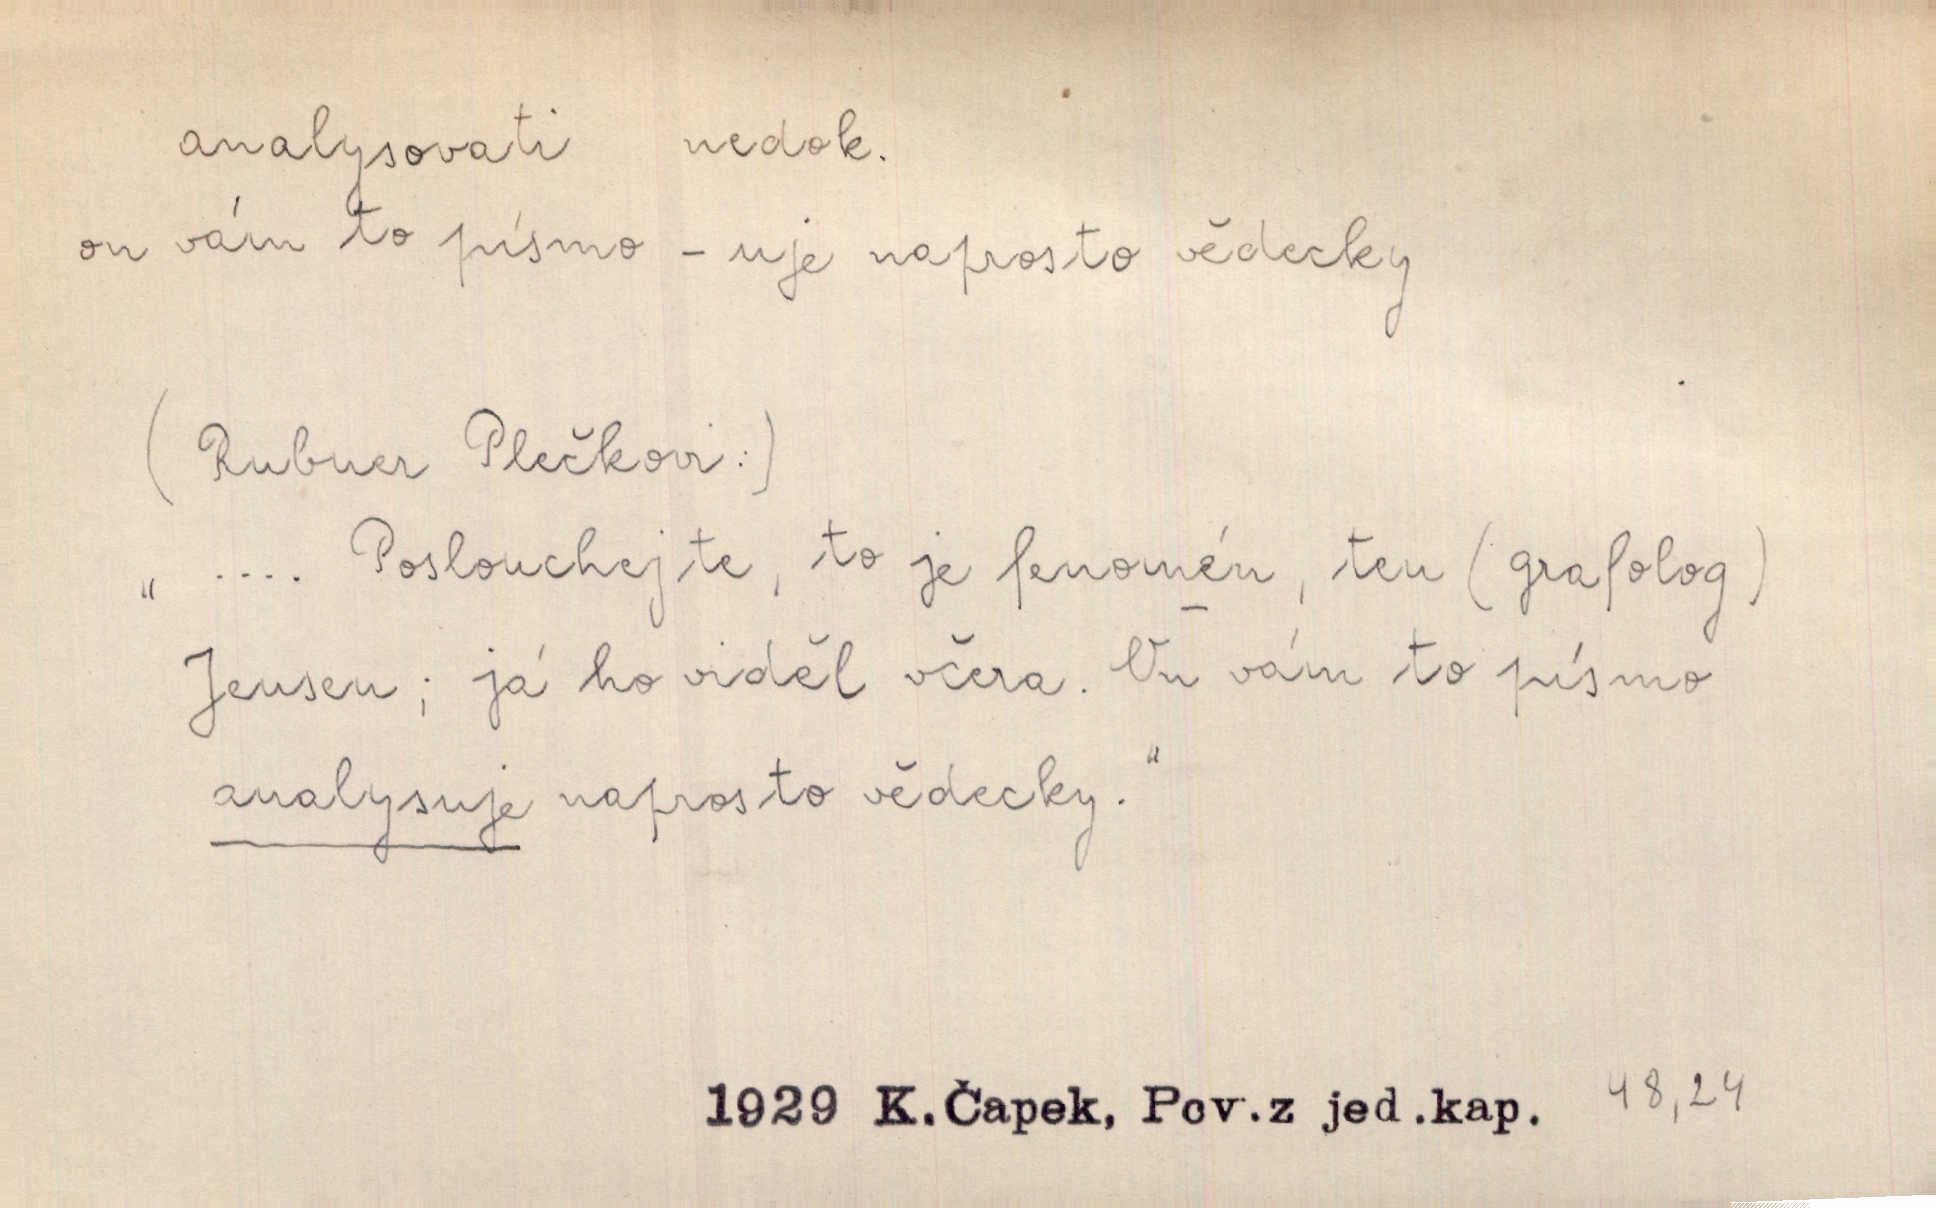 analysovati nedok.
on vám to písmo - uje naprosto vědecky
(Rubner Plečkovi:)
„ .... Poslouchejte, to je fenomén, ten (grafolog)
Jensen; já ho viděl včera. On vám to písmo
analysuje naprosto vědecky.“
1929 K. Čapek, Pov. z jed. kap. 48,24